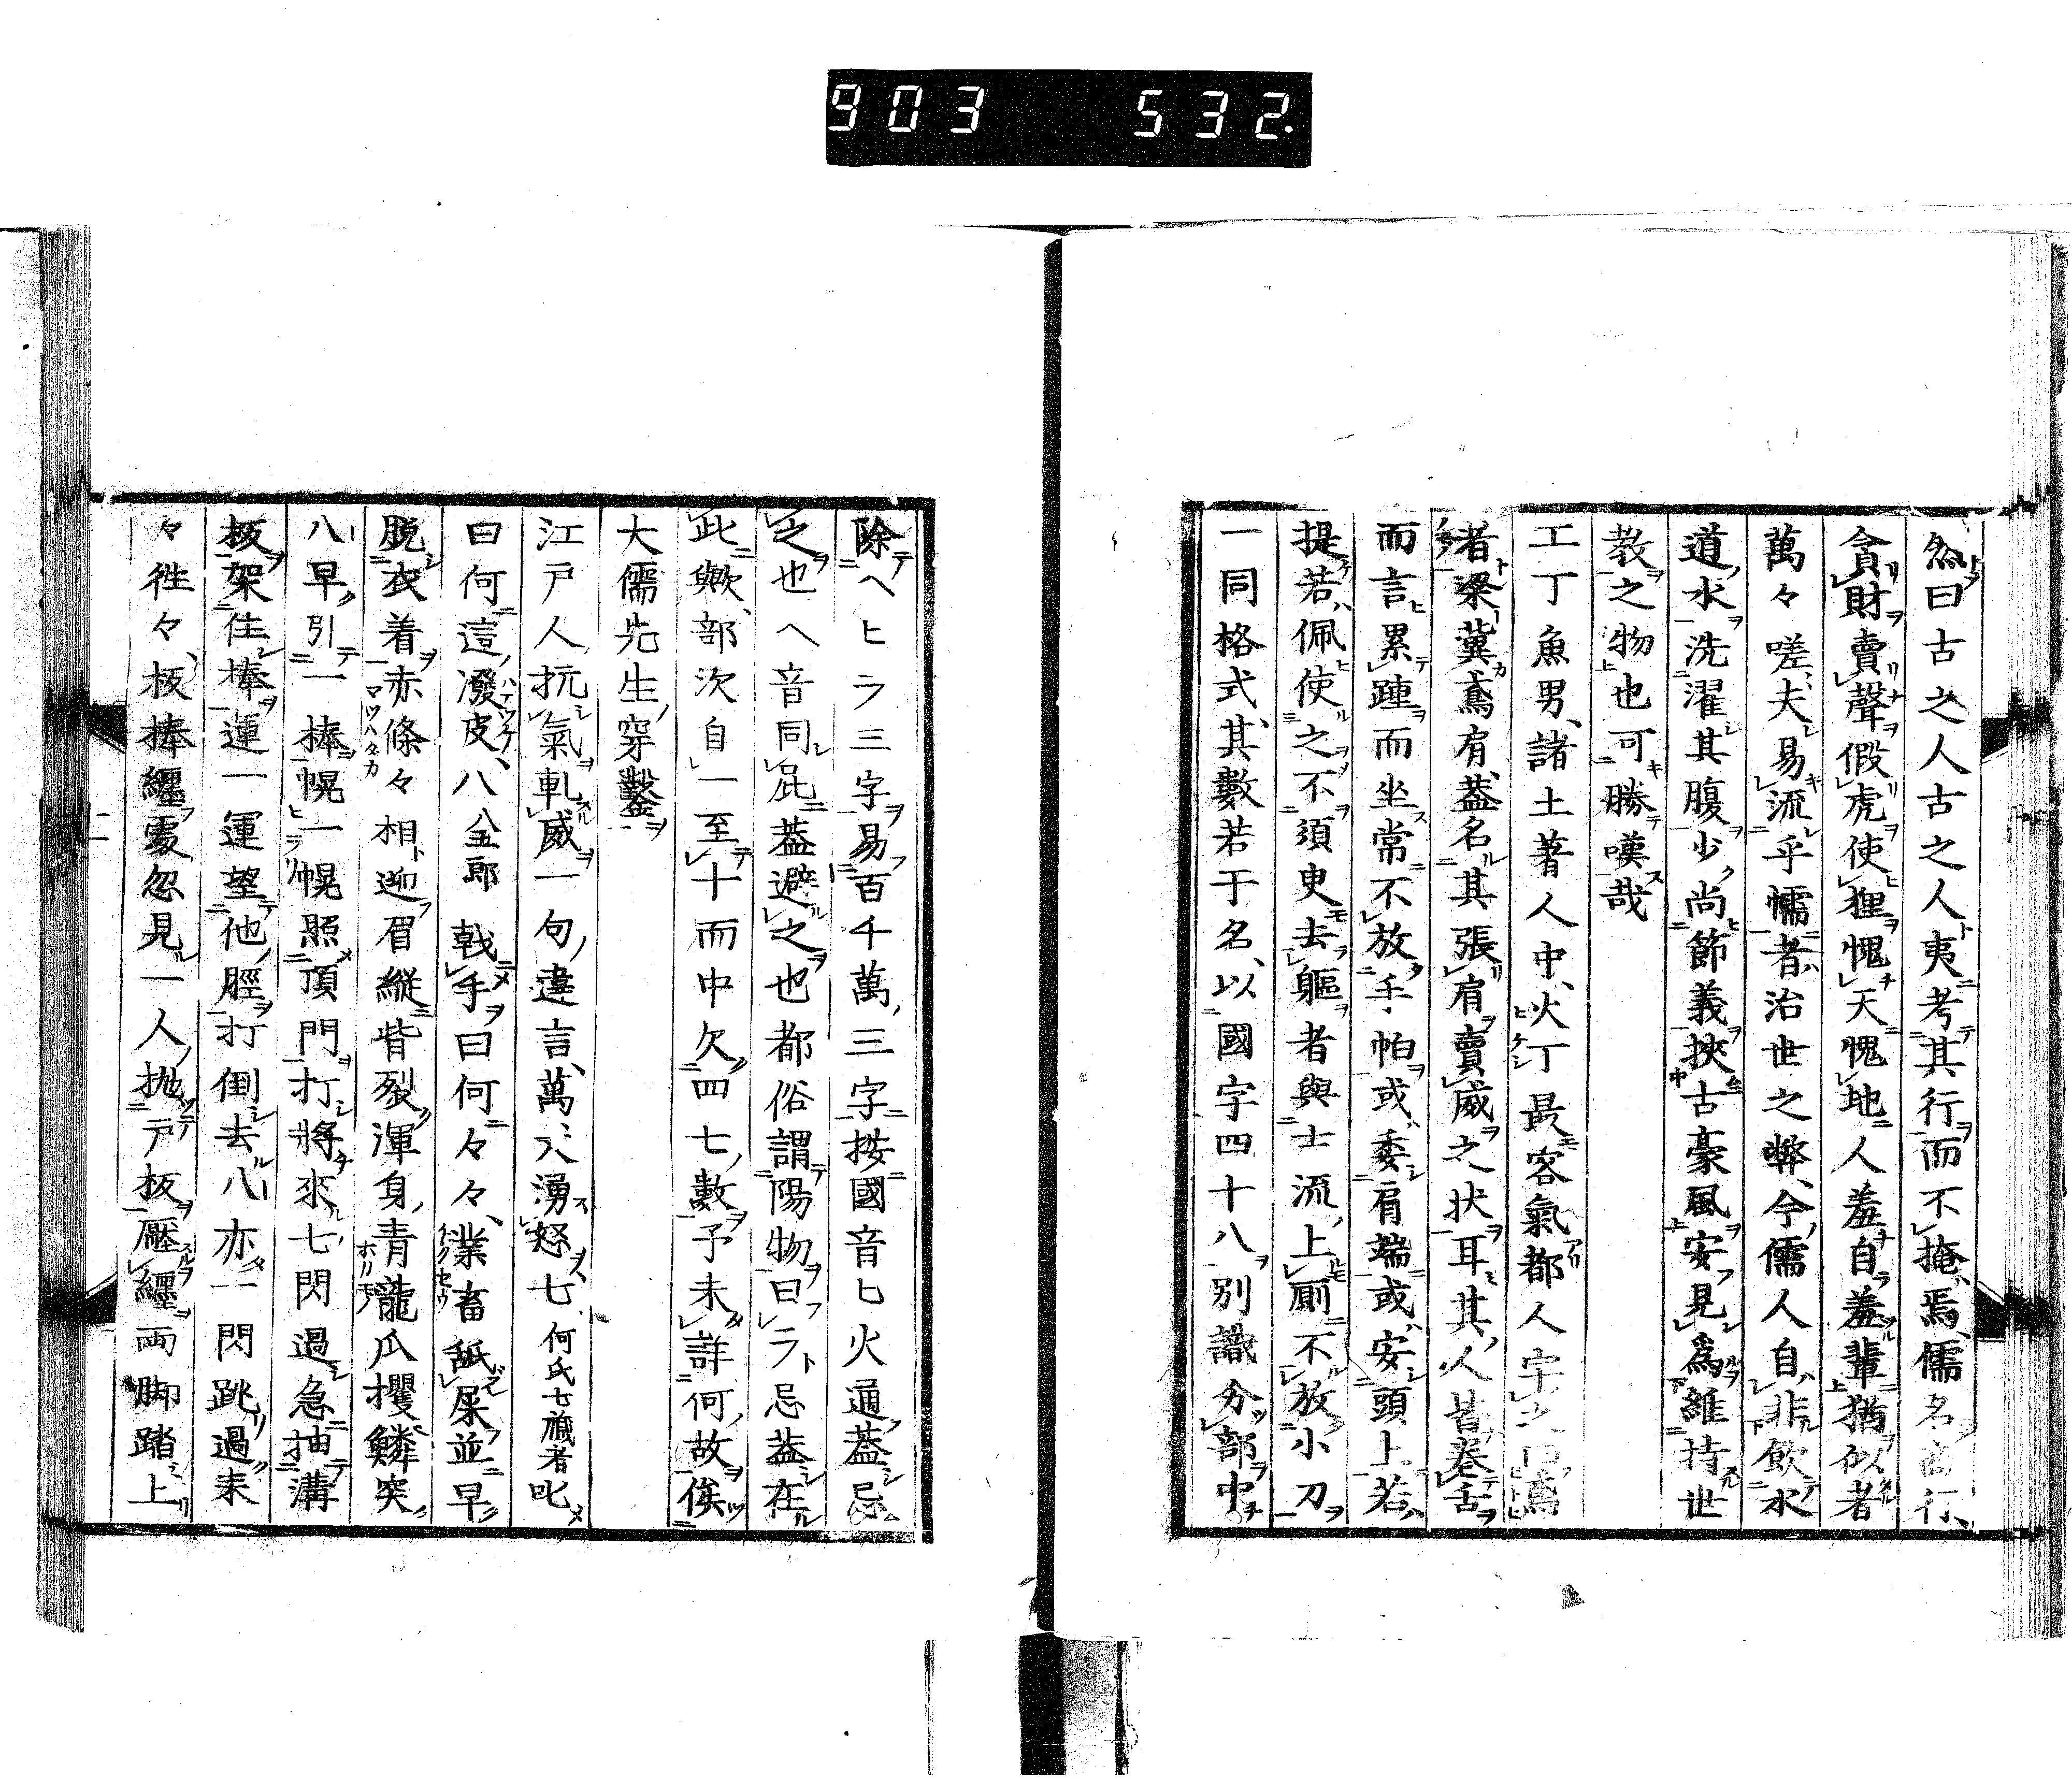 903 532.
然曰古之人古之人夷考其行而不掩焉儒名
貪財賣聲假虎使狸愧天愧地人羞自羞輩猶似者
萬々嗟夫易流乎懦者治世之弊今儒人自非飲水
道水洗濯其腹少尚節義挾古豪風安見爲維持世
教之物也可勝嘆哉
工丁魚男諸土著人中火丁最客氣都人字之曰鳶
者梁冀鳶肩蓋名其張肩賣威之状耳其人皆巻舌
而言累踵而坐常不放手帕或委肩端或安頭上若
提若佩使之不須臾去軀者與士流上厠不放小刀
一同格式其數若干名以國字四十八別識分部中
除ヘヒラ三字易百千萬三字按國音ヒ火通蓋忌
之也ヘ音同屁蓋避之也都俗謂陽物曰ラ忌蓋在
此歟部次自一至十而中欠四七數予未詳何故俟
大儒先生穿鑿
江戸人抗氣軋威一句違言萬丈湧怒七何氏七藏者叱
曰何這潑皮八八五郎戟手曰何々々業畜舐屎並早
脱衣着赤條々相迎眉縱眥裂渾身青龍爪攫鱗突
八早引一棒幌一幌照頂門打將來七閃過急抽溝
板架住棒運一運望他脛打倒去八亦一閃跳過来
々往々板捧纒處忽見一人抛戸板壓纒両脚踏上